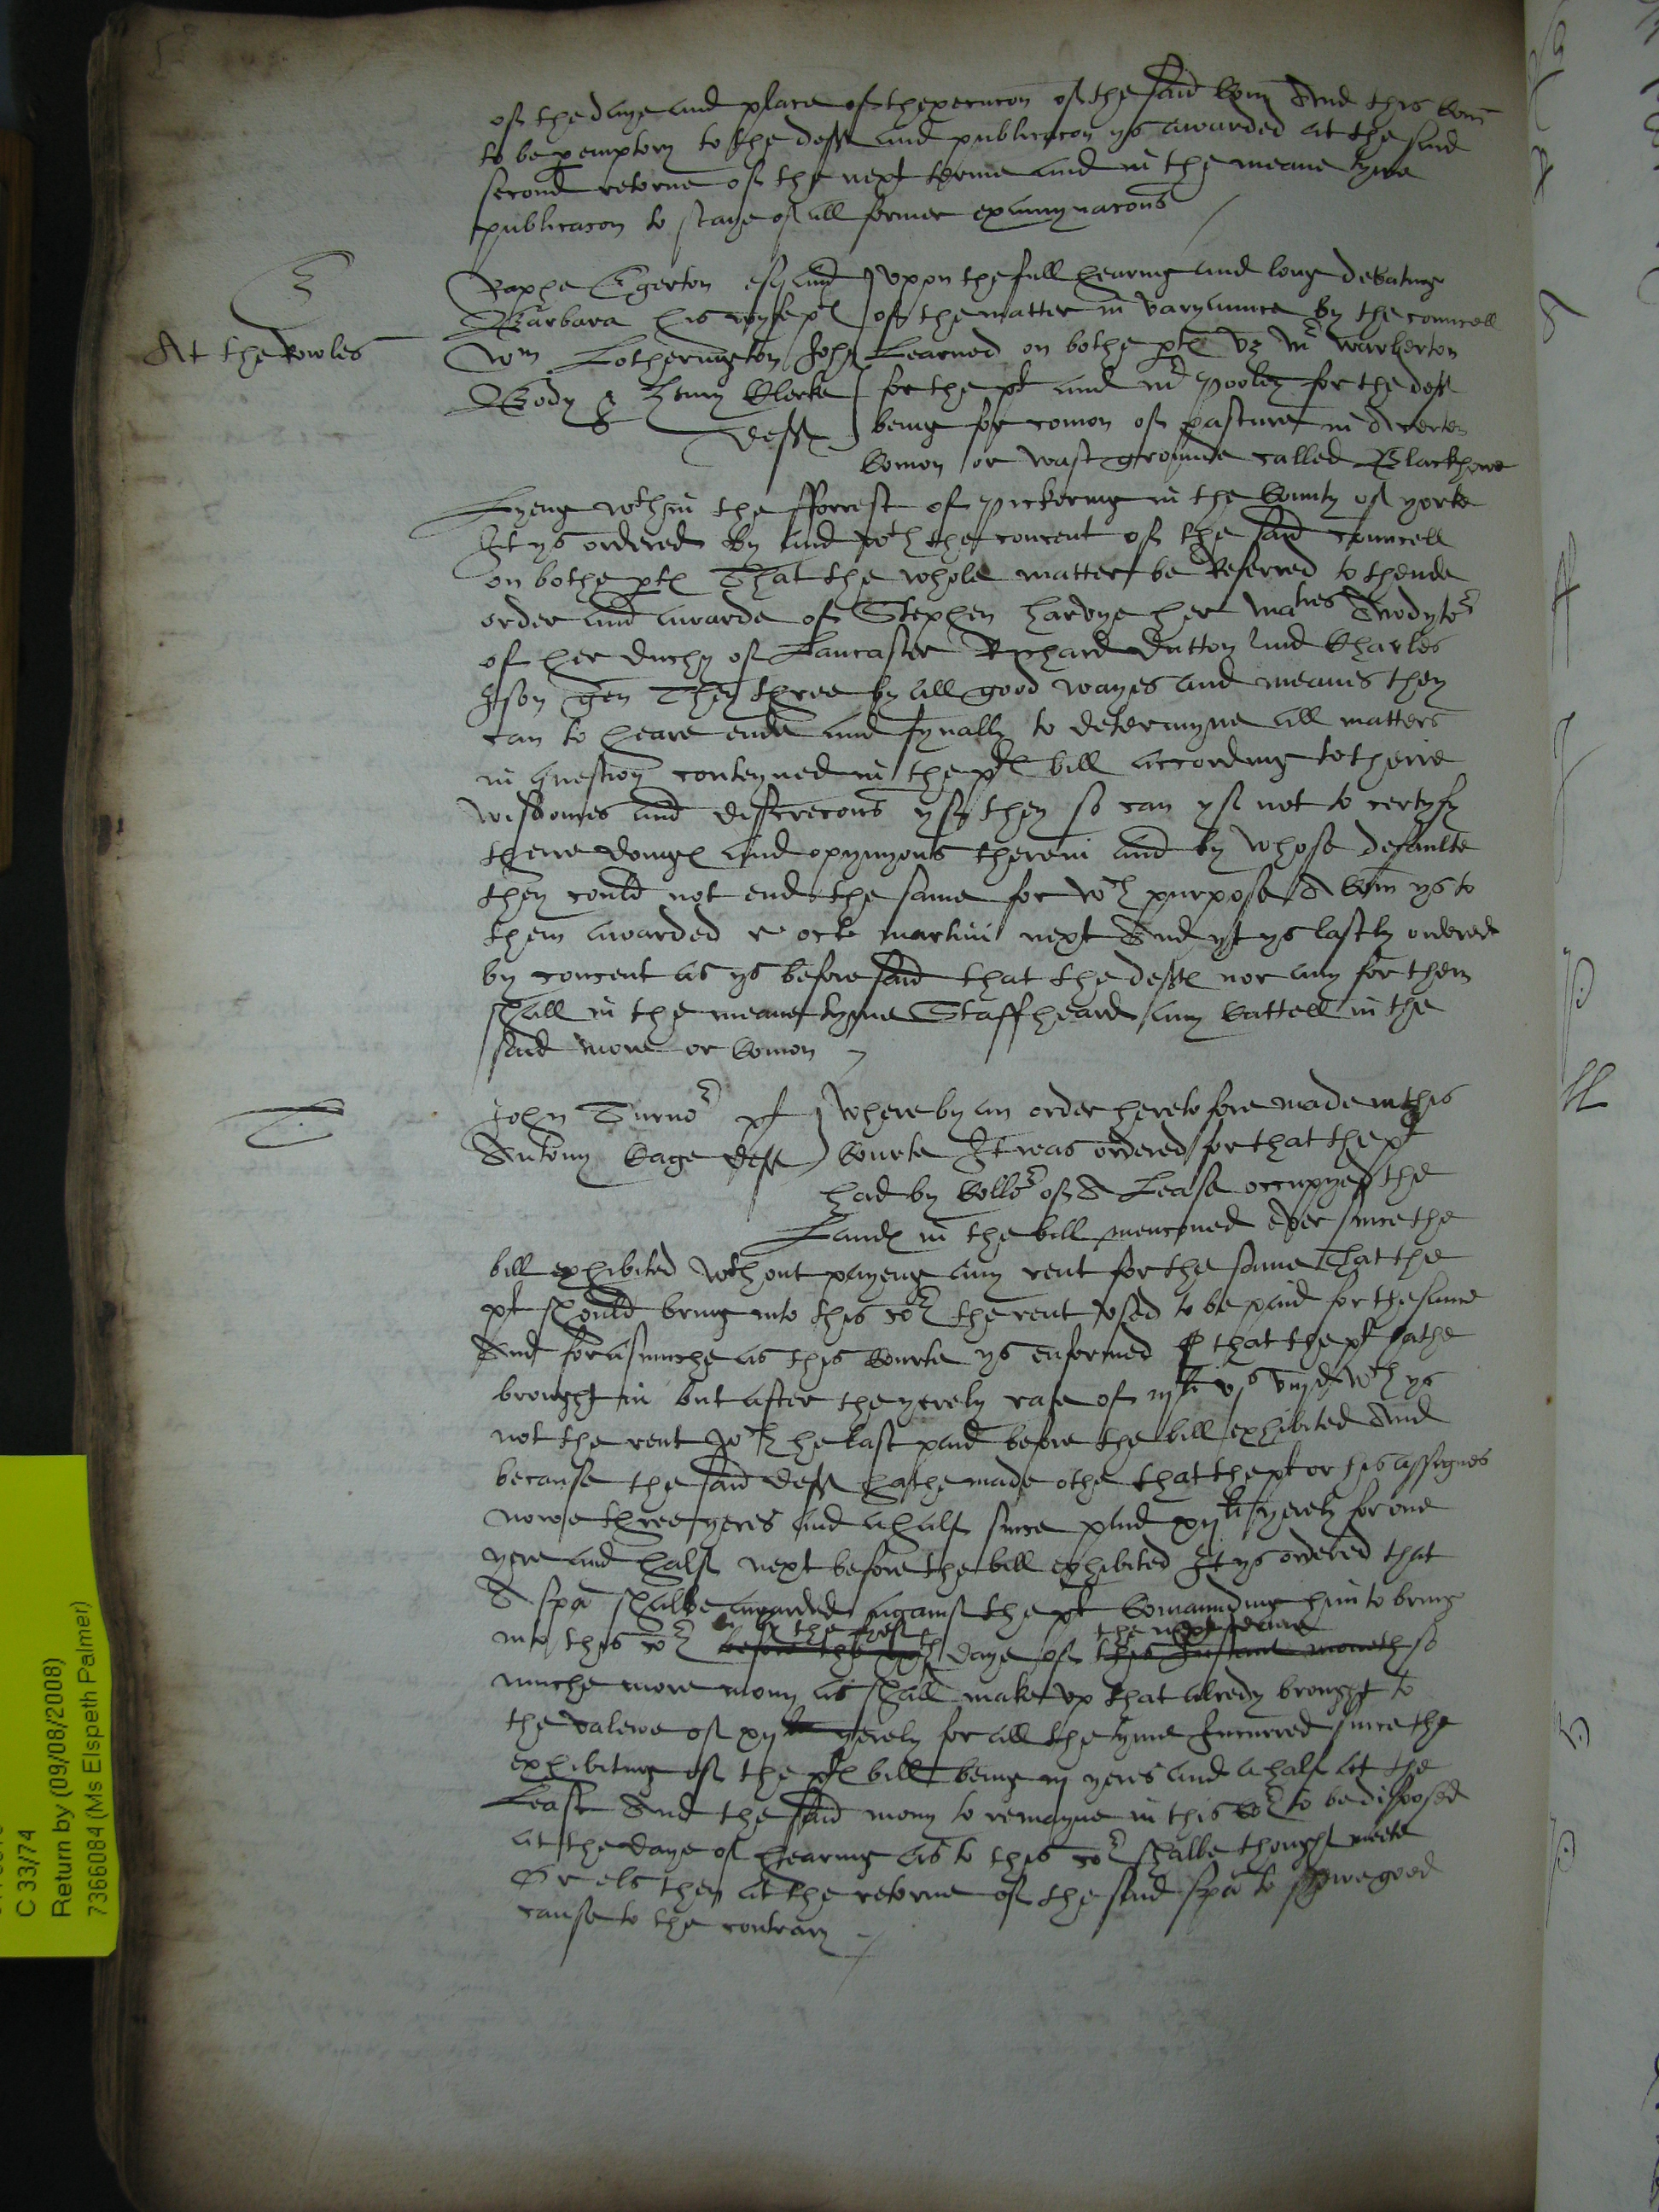 of the daye and place of thexecucon of the said Com And this Com
to be peremptory to the deft and publicacon ys awarded at the said
second retorne of the next terme and in the meane tyme
publicacon to staye of all former examynacons
E
Raphe Egerton esq and upon the full hearing and long debating
Barbara his wyfe plt of the matter in varyaunce by the councell
At the Rowles
Wm Lotherington John Learned on bothe ptes vz mr Warberton
Body & Henry Clerke for the plt and mr Pooley for the deft
deftes being for comon of pasture in A certen
Comon or wast grounde called Blackhowe
Lyeng wthin the fforrest of Pickering in the County of yorke
It ys ordered by and wth the concent of the said councell
on bothe ptes That the whole matter be Referred to thende
order and awarde of Stephen hardye her maties Awdytor
of her duchy of Lancaster Rychard Dutton and Charles
Ison gen They three by all good wayes and meanes they
can to heare ende and fynally to determyne all matters
in question conteyned in the pltes bill according to theire
wisdomes and discrecons yf they so can yf not to certyfy
theire doinges and opynyons therein and by whose defaulte
they could not end the same for wch purpose A Com ys to
them awarded r octe martini next And yt ys lastly ordered
by concent as ys before said that the deftes nor any for them
shall in the meane tyme Staffheard any Cattell in the
said more or Comon
T
John Turnor plt where by an order heretofore made in this
Antony Cage deft Courte It was ordered for that the plt
had by Collor of A Lease occupyed the
Landes in the bill mencioned ever since the
bill exhibited wthout payeng any rent for the same That the
plt should bring into this Cor the rent used to be paid for the same
And forasmuche as this Courte ys enformed that the plt hathe
brought in but after the yerely rate of iijli vjs viijd wch ys
not the rent wch he last paid before the bill exhibited And
because the said deft hathe made othe that the plt or his assignes
nowe three yeres and a half since paid xijli yerely for one
yere and half next before the bill exhibited It ys ordered that
A spa shalbe awarded against the plt Comaunding him to bring
by the fyrst the next terme
into this Cor before the daye of this Instant moneth so
muche more mony as shall make up that alredy brought to
the valewe of xijli yerely for all the tyme Incurred since the
exhibiting of the pltes bill being iij yeres and a half at the
Least And the said mony to remayne in this Cor to be disposed
at the daye of hearing as to this Cor shalbe thought meete
Or els then at the retorne of the said spa to shewe good
cause to the contrary
C 33/74
Return by (09/08/2008)
7366084 (Ms Elspeth Palmer)